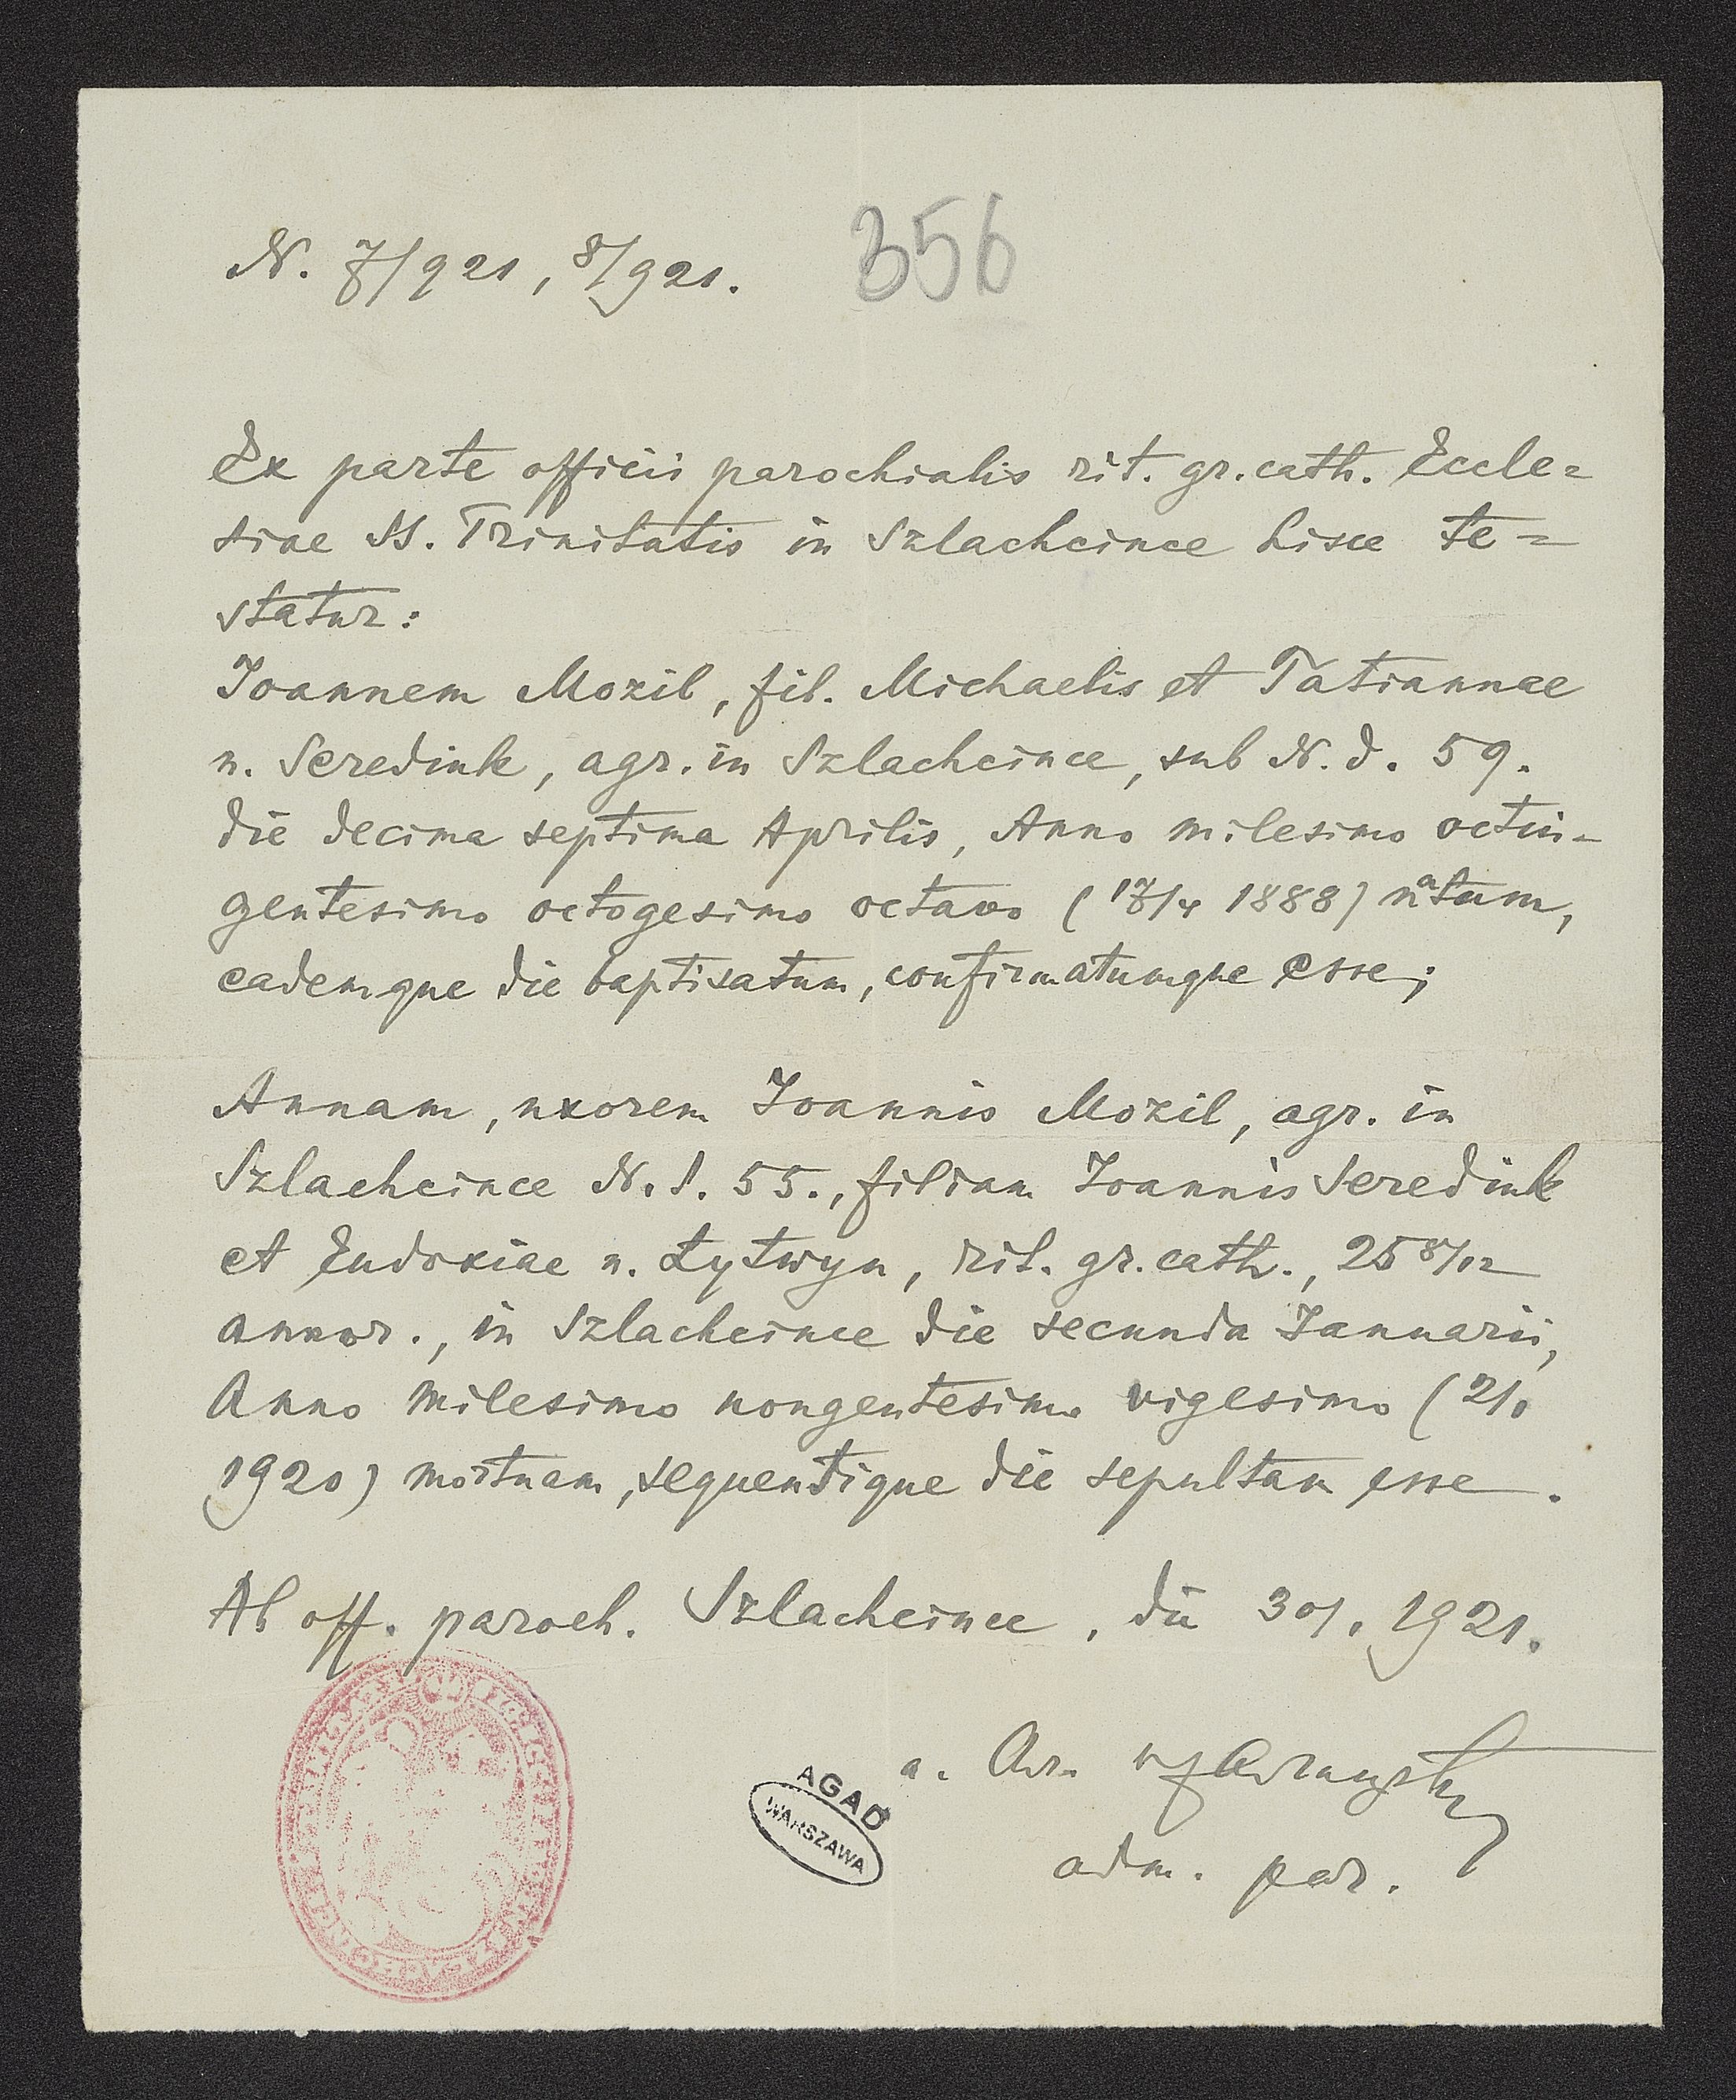 N. 7/921, 8/921.
356
Ex parte officii parochialis rit. gr. cath. Eccle=
siae SS. Trinitatis in Szlachcince hisce te=
statur:
Ioannem Mozil, fil. Michaelis et Tatiannae
n. Seredink, agr. in Szlachcince, sub N. d. 59.
die decima septima Aprilis, Anno milesimo octin-
gentesimo octogesimo octavo (17/4 1888) natum,
eademque die baptisatum, confirmatumque esse;
Annam, uxorem Ioannis Mozil, agr. in
Szlachcince N. d. 55., filiam Ioannis Seredink
et Eudoxiae n. Łytwyn, rit. gr. cath., 25 8/12
annor., in Szlachcince die secunda Ianuarii,
Anno milesimo nongentesimo vigesimo (2/1
1920) mortuam, sequentique die sepultam esse.
Ab off. paroch. Szlachcince, die 30/1 1921.
AGAD
WARSZAWA
adm. par.